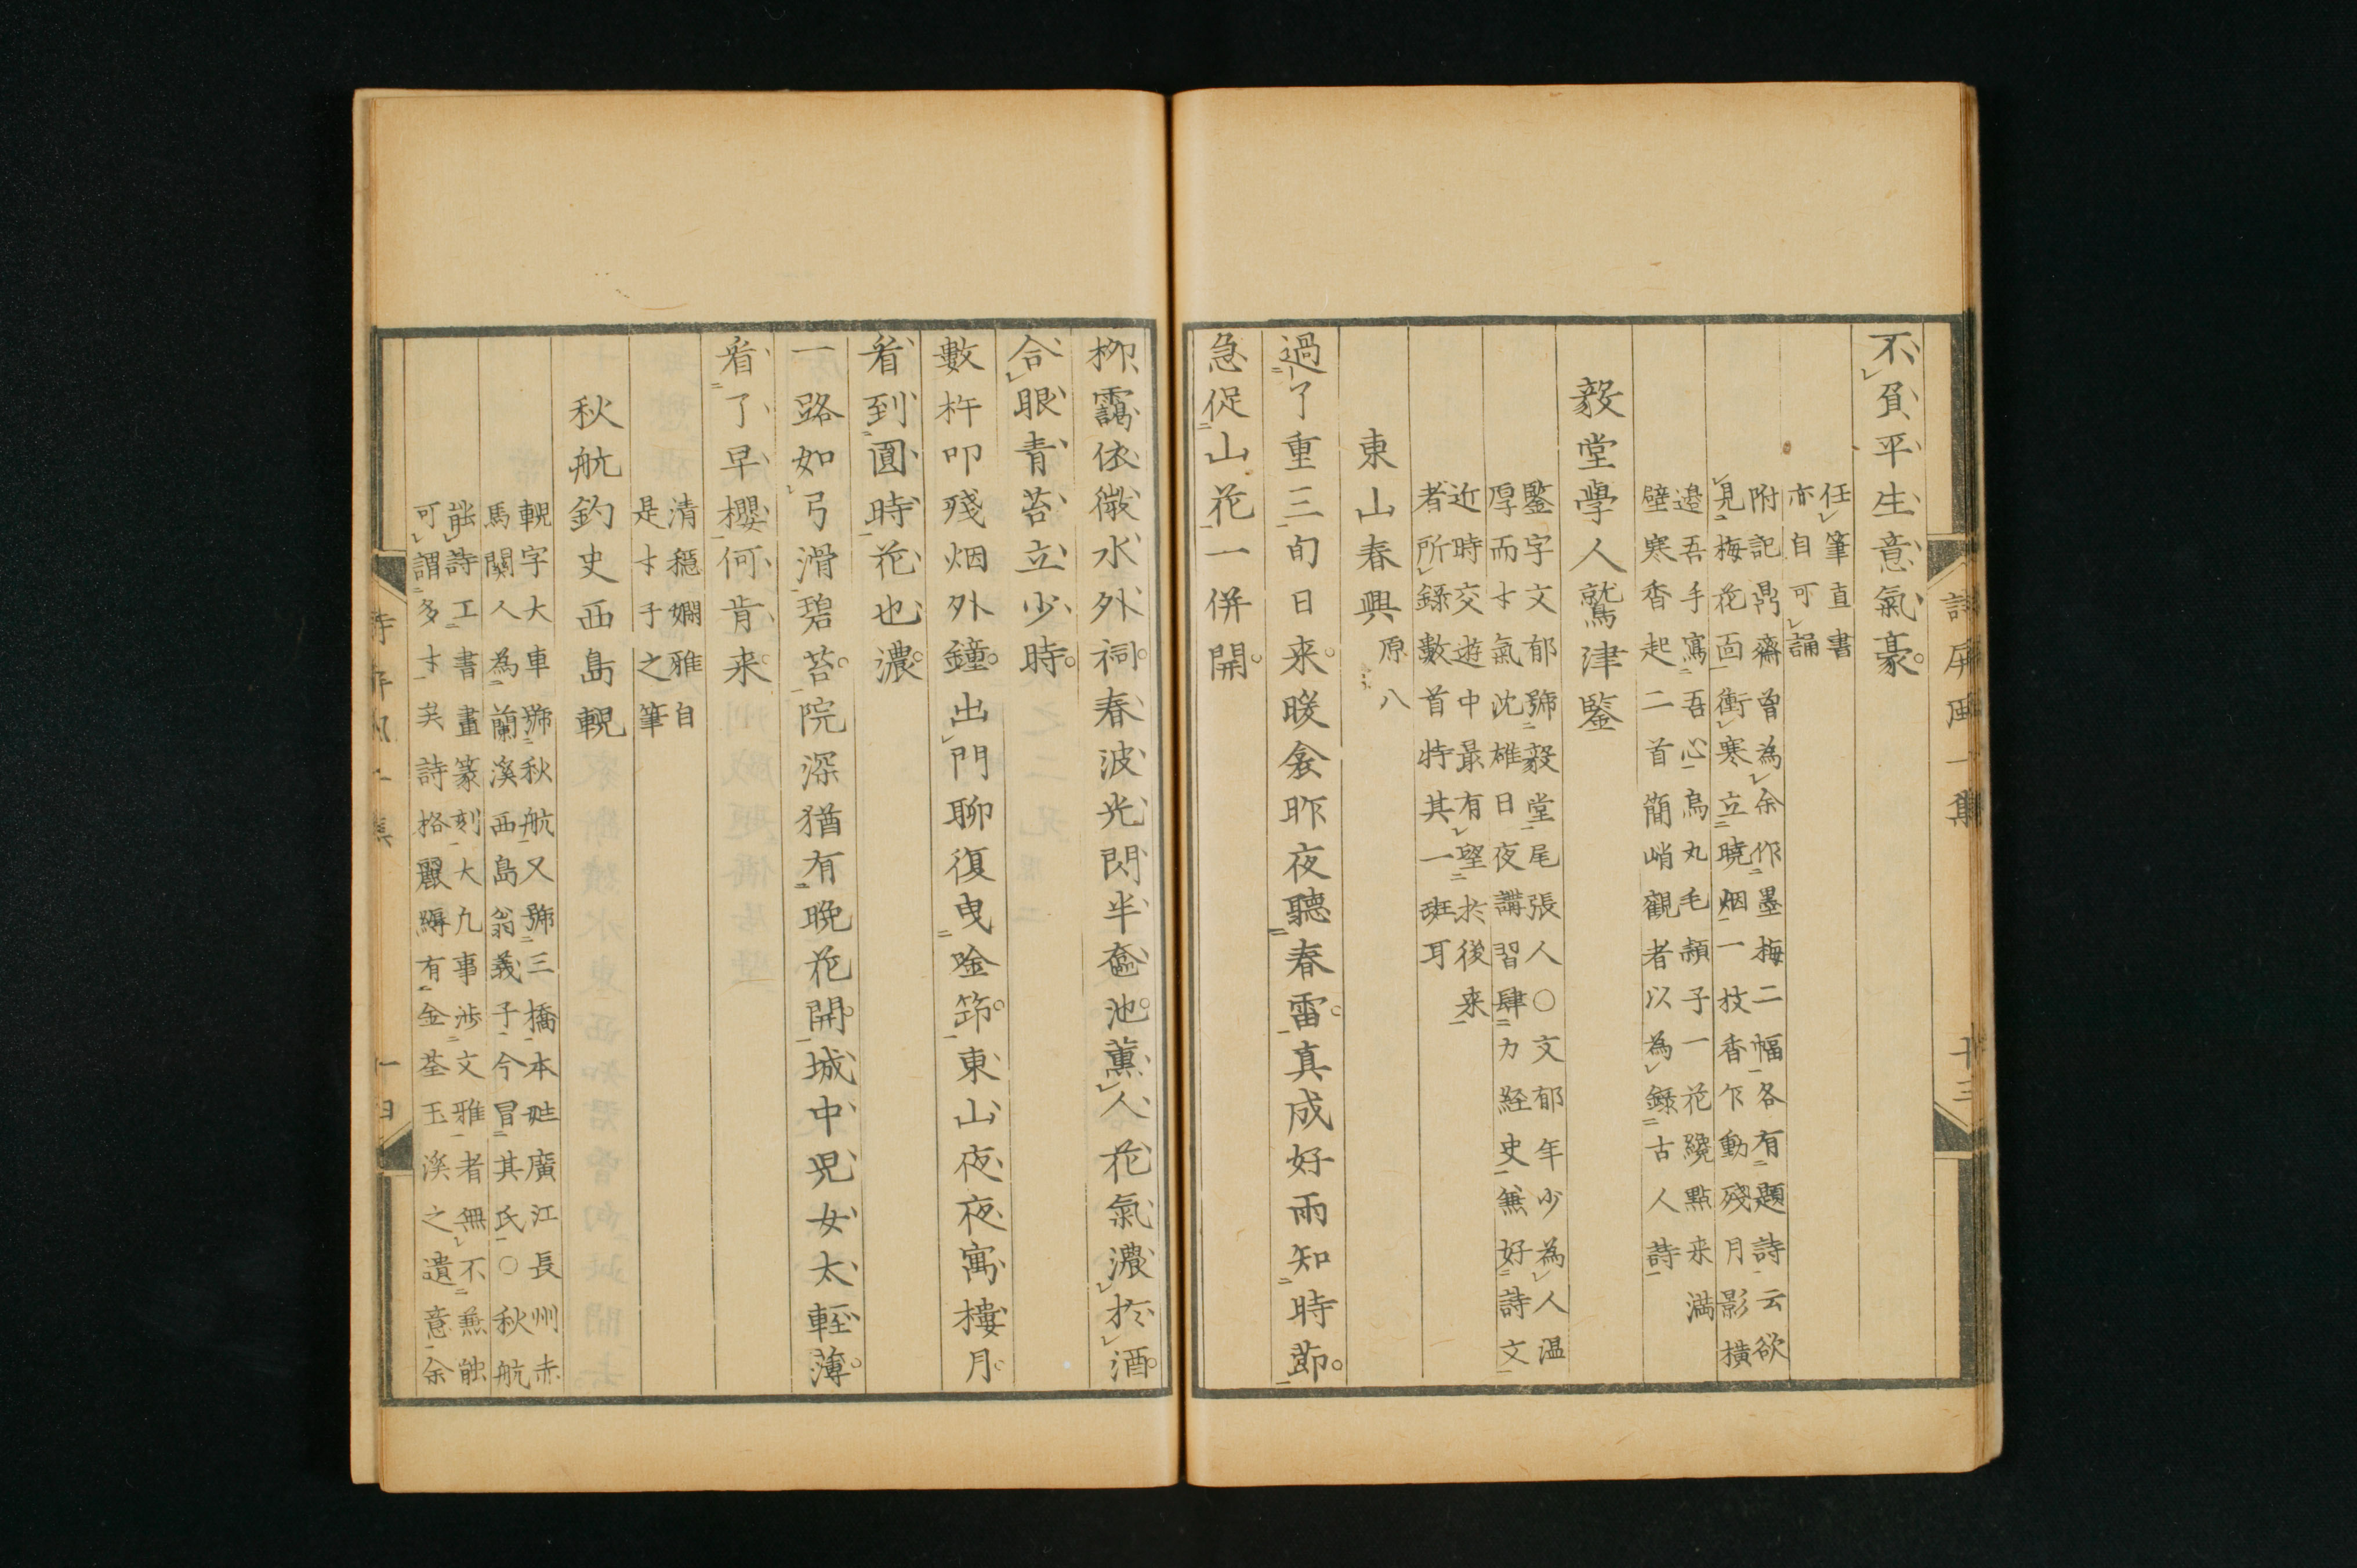 不負平生意氣豪。
任筆直書
亦自可誦
附記鼎齋曾為余作墨梅二幅各有題詩云欲
見梅花面衝寒立曉烟一枝香乍動殘月影橫
邉吾手寫吾心烏丸毛頴子一花繞點来満
壁寒香起二首簡峭觀者以為録古人詩
毅堂學人鷲津鑒
鑒字文郁號毅堂尾張人○文郁年少為人温
厚而才氣沈雄日夜講習肆力経史無好詩文
近時交遊中最有望於後来
者所録數首特其一班耳
東山春興 原八
過了重三旬日来。暖衾昨夜聽春雷。真成好雨知時莭。
急促山花一併開。
柳靄依微水外祠。春波光閃半奩池。薰人花氣濃於酒。
合眼青苔立少時。
數杵叩殘烟外鐘。出門聊復曳唫笻。東山夜夜寓樓月。
看到圓時花也濃。
一路如弓滑碧苔。院深猶有晩花開。城中児女太輕薄。
看了早櫻何肯来。
清穏嫻雅自
是才子之筆
秋航釣史西島輗
輗字大車號秋航又號三橋本姓廣江長州赤
馬關人為蘭溪西島翁義子今冒其氏○秋航
能詩工書畫篆刻大九事渉文雅者無不兼能
可謂多才矣詩格麗縟有金荃玉溪之遺意余
詩屏風一集
十三